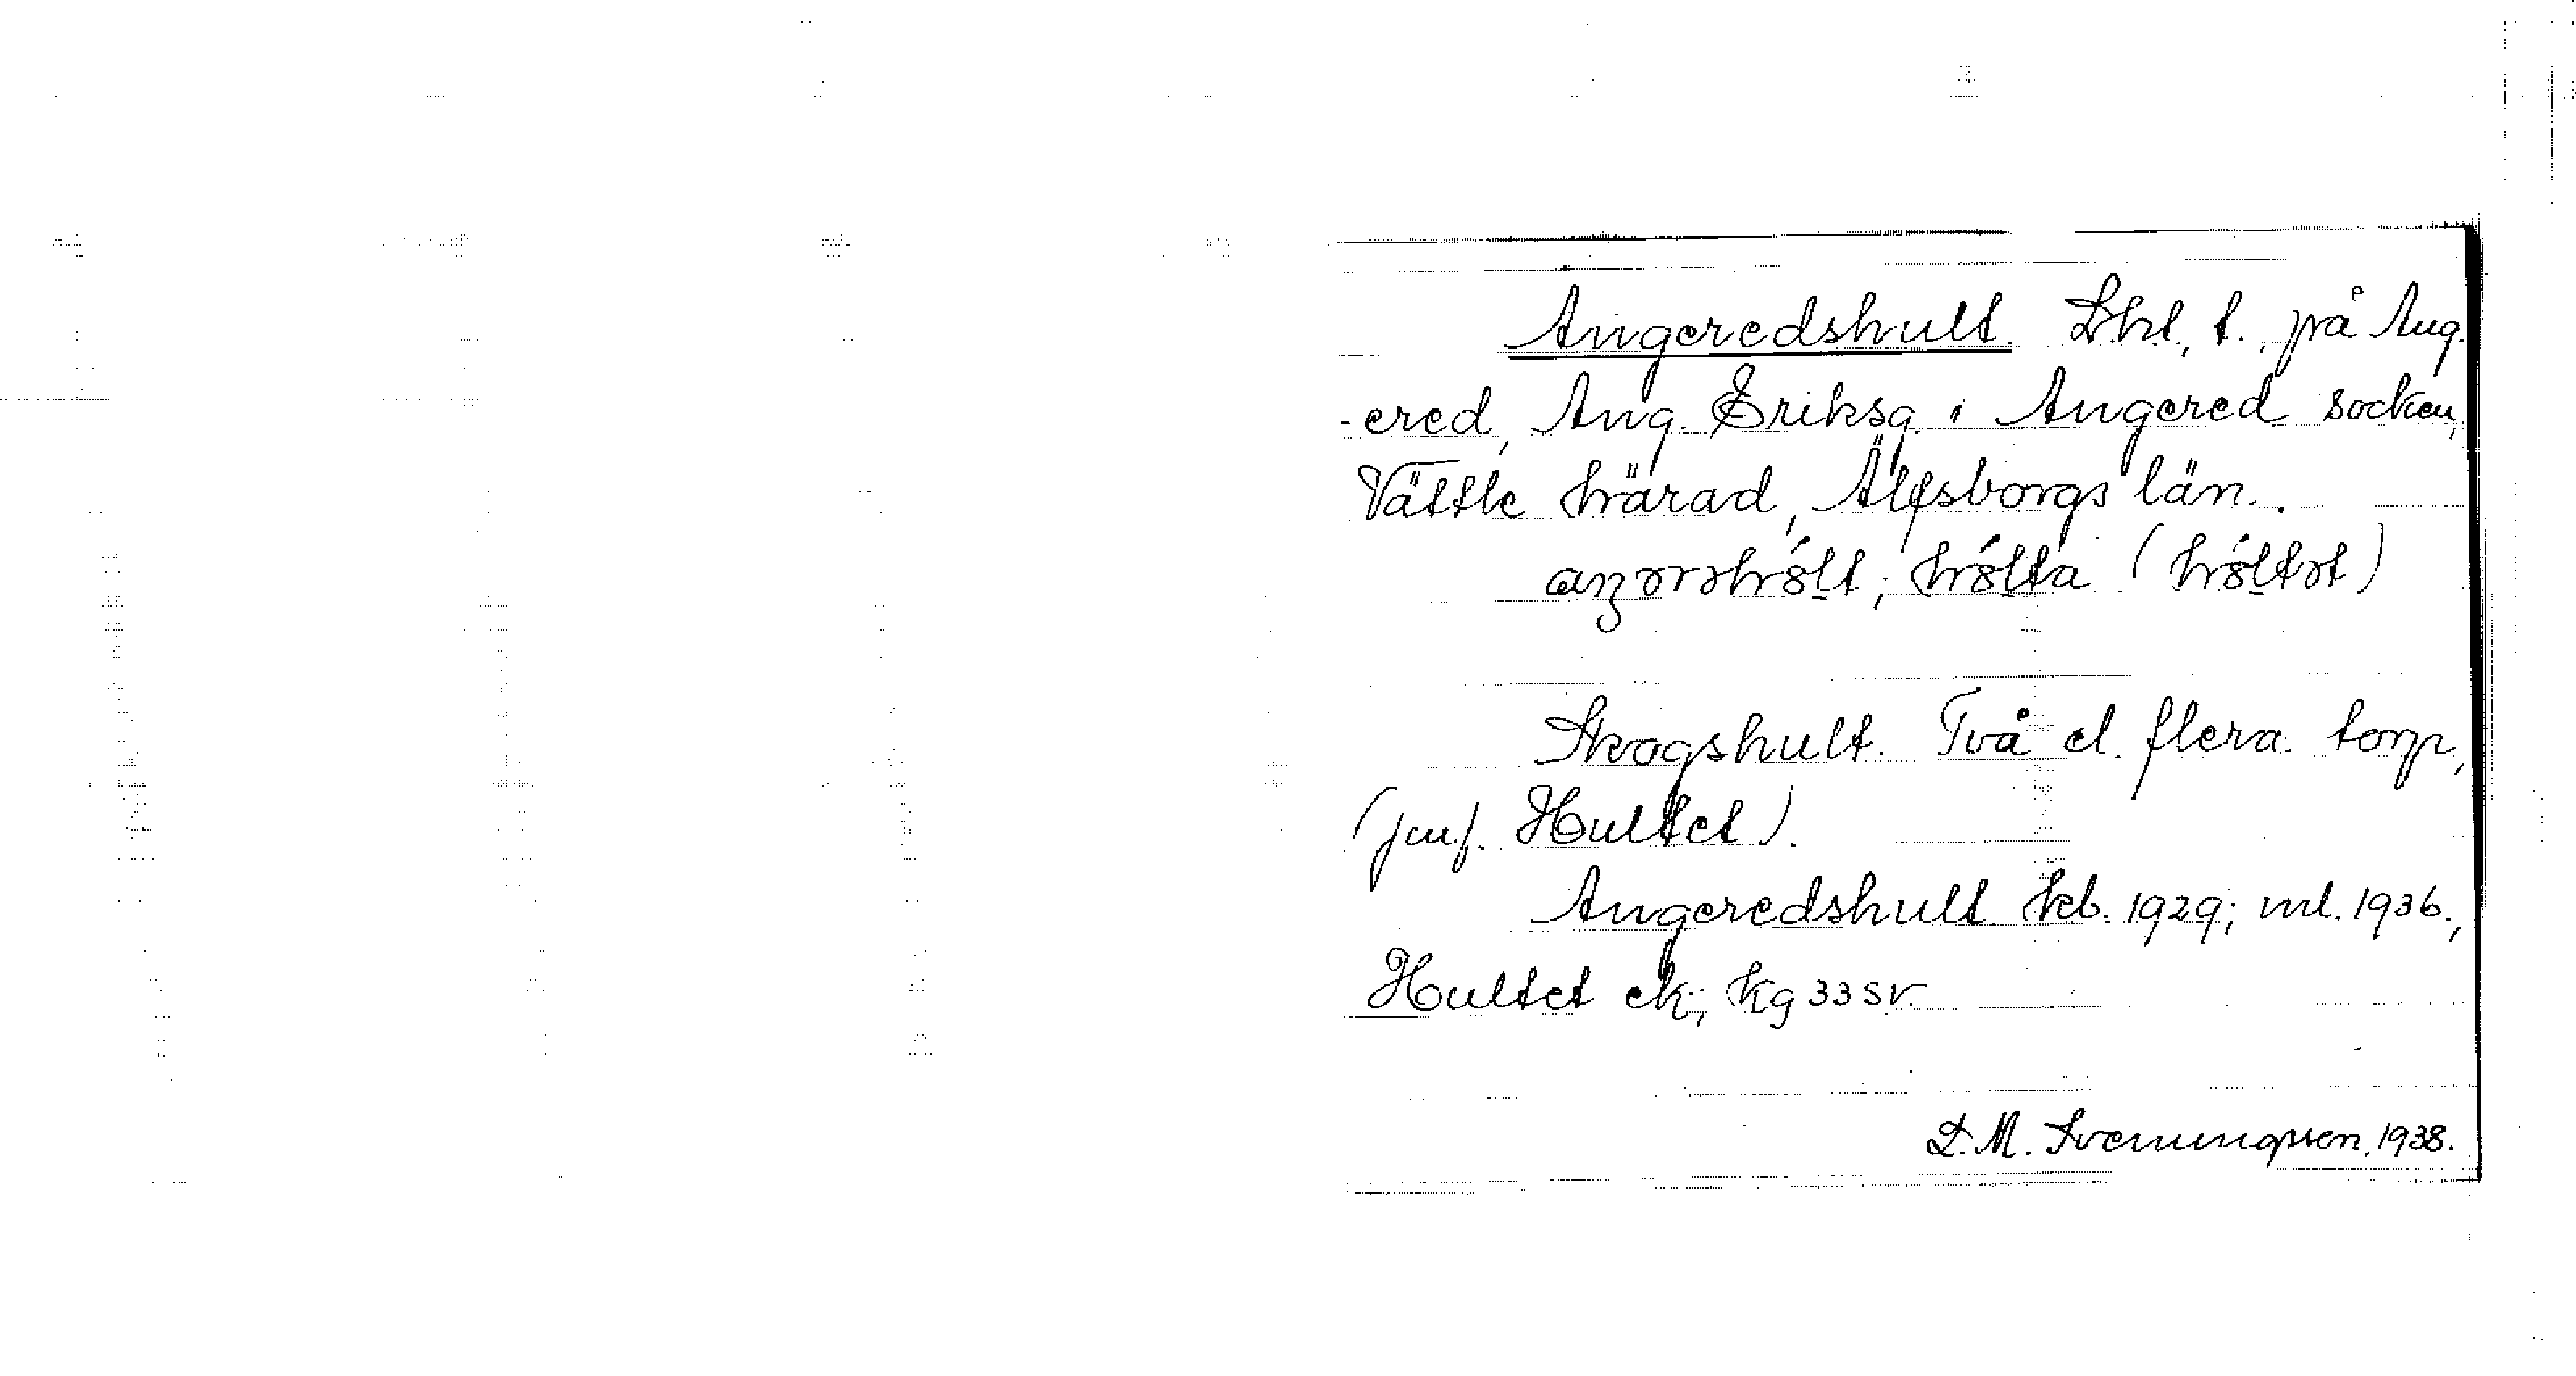 Angeredshult. Lht, t. på Ang.
-ered, Ang. Eriksg. i Angered socken,
Vättle härad, Älfsborgs län.
Skogshult. Två el. flera torp,
(jmf. Hultet).
Angeredshult kb. 1929; ml. 1936.,
Hultet ek; kg 33 SV.
D. M. Sveningsson, 1938.